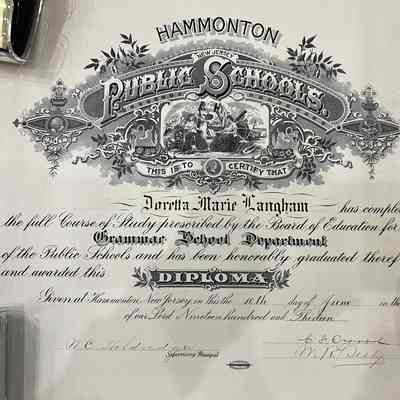 HAMMONTON
NEW JERSEY
PUBLIC SCHOOLS.
THIS IS TO CERTIFY THAT
Doretta Marie Langham has comple
the full Course of Study prescribed by the Board of Education for
Grammar School Department
of the Public Schools and has been honorably graduated theref
and awarded this
DIPLOMA
Given at Hammonton, New Jersey, on this the 10th day of June in th
of our Lord Nineteen hundred and Thirteen
N.C.
Supervising Principal